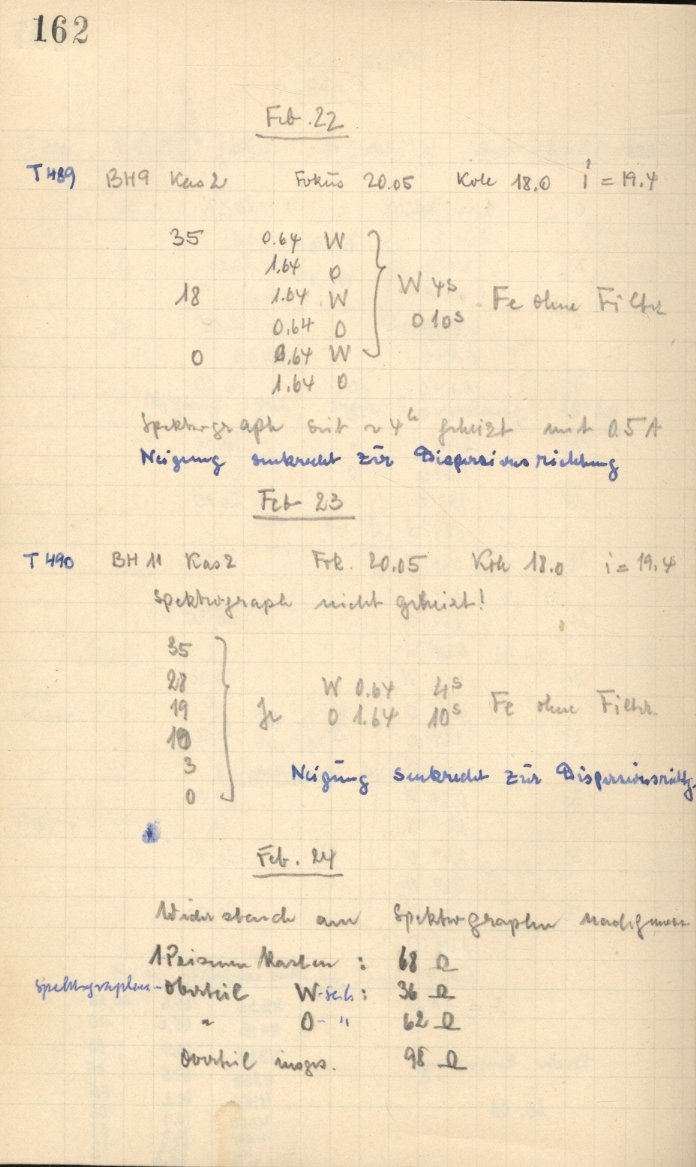 162
Feb. 22
T 489 BH9 Kas 2 Fokus 20.05 Koll 18.0 i = 19.4
35 0.64 W
1.64 O
18 1.64 W
0.64 O
0 0.64 W
1.64 O
W 4s
O 10s
Fe ohne Filter
Spektrograph seit ~ 4h geheizt mit 0.5 A
Neigung senkrecht zur Dispersionsrichtung
Feb 23
T 490 BH 11 Kas 2 Fok. 20.05 Koll 18.0 i = 19.4
Spektrograph nicht geheizt!
35
28
19
10
3
0
je
W 0.64 4s
O 1.64 10s
Fe ohne Filter.
Neigung senkrecht zur Dispersionsrichtg.
Feb. 24
Widerstand am Spektrographen
1 Prismen Kasten : 68 Ω
Spektrographen-Oberteil W-Seite : 36 Ω
" O- " 62 Ω
Oberteil insges. 98 Ω